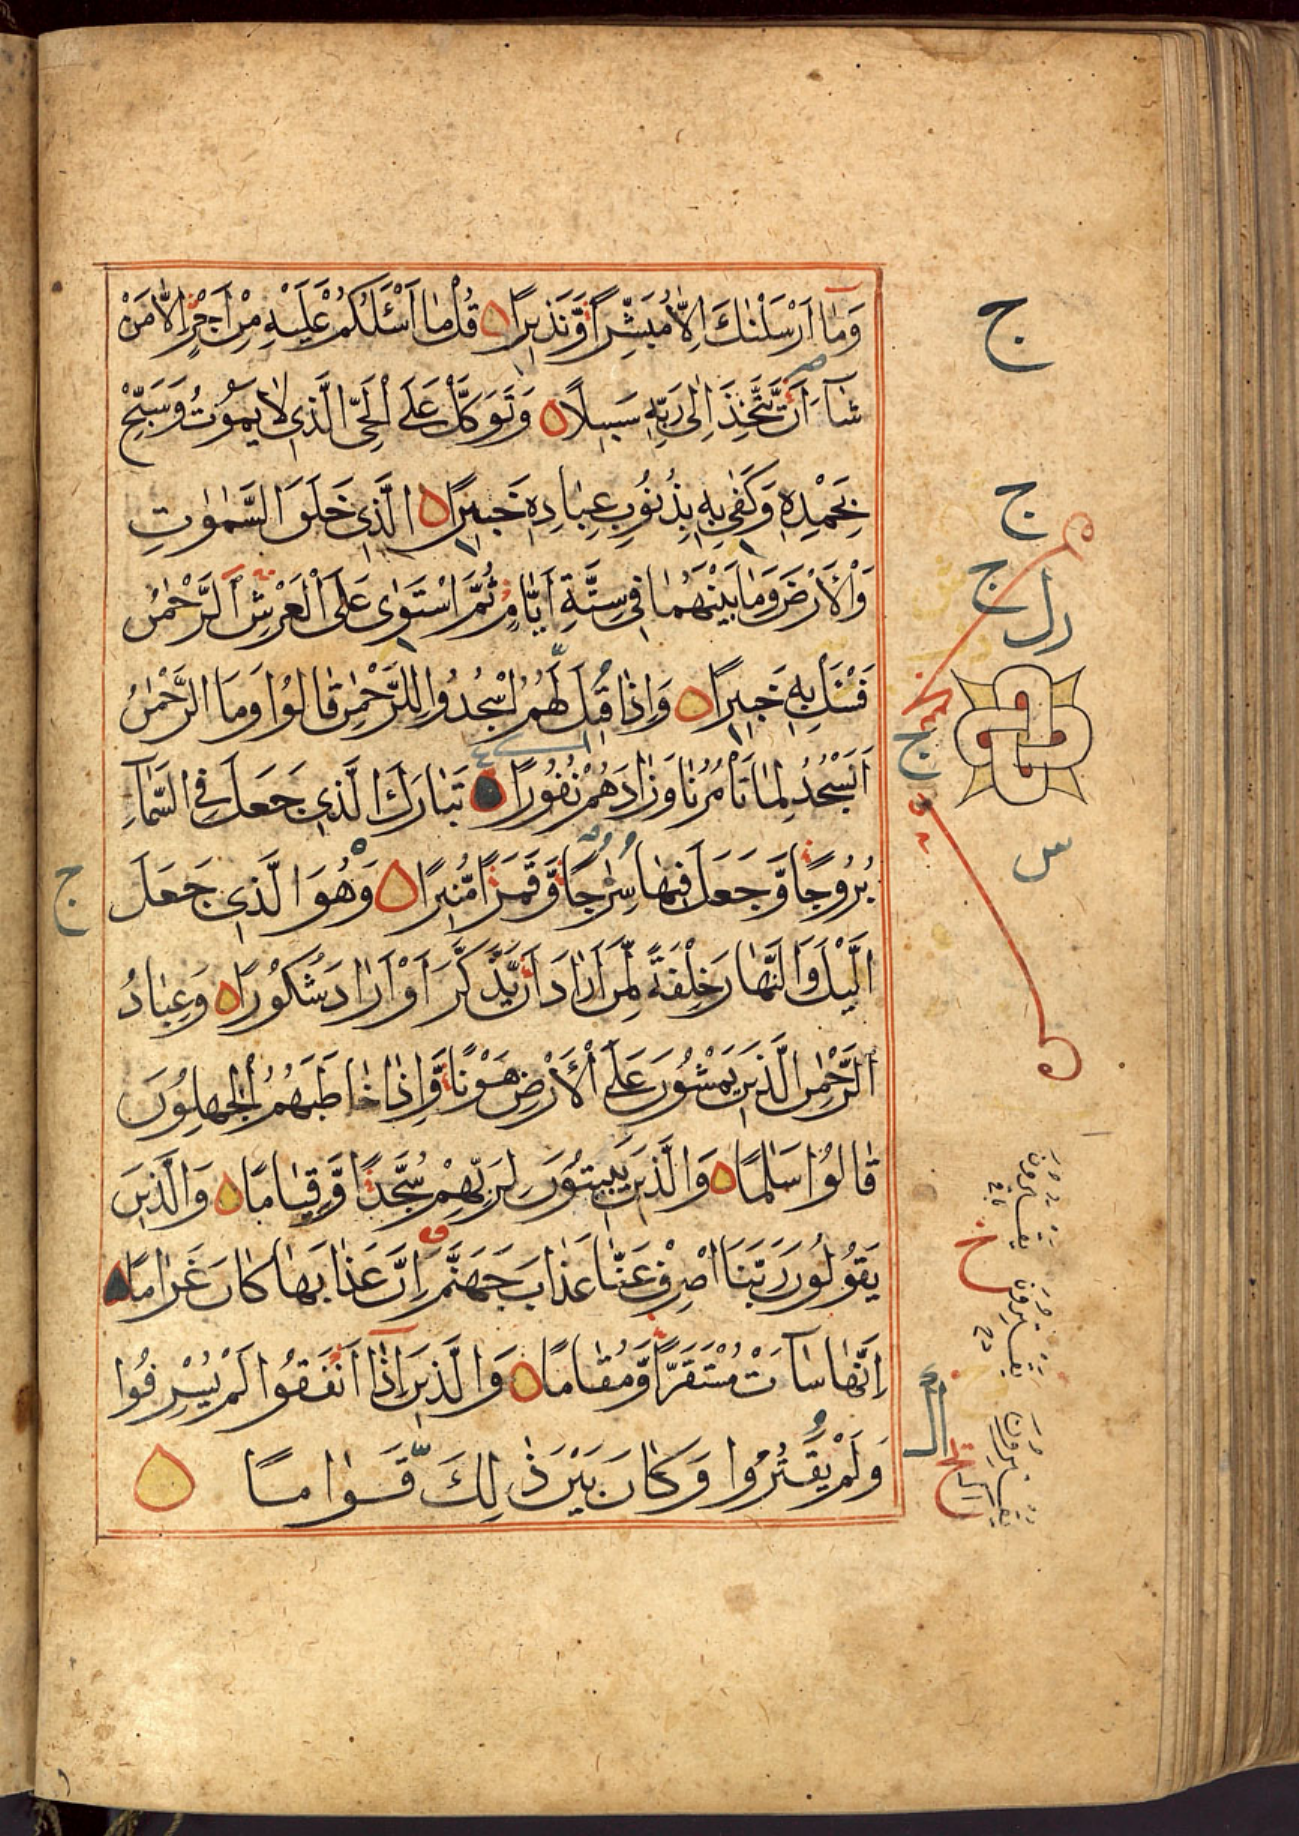 وَمَآ اَرْسَلْنٰكَ اِلَّا مُبَشِّرًا وَّنَذِيرًا قُلْ مَا اَسْـَٔلُكُمْ عَلَيْهِ مِنْ اَجْرٍ اِلَّا مَنْ
شَآءَ اَنْ يَّتَّخِذَ اِلٰى رَبِّهٖ سَبِيلًا وَتَوَكَّلْ عَلَى الْحَيِّ الَّذِي لَا يَمُوْتُ وَسَبِّحْ
بِحَمْدِهٖ وَكَفٰى بِهٖ بِذُنُوْبِ عِبَادِهٖ خَبِيرًا الَّذِي خَلَقَ السَّمٰوٰتِ
وَالْاَرْضَ وَمَا بَيْنَهُمَا فِي سِتَّةِ اَيَّامٍ ثُمَّ اسْتَوٰى عَلَى الْعَرْشِ اَلرَّحْمٰنُ
فَسْـَٔلْ بِهٖ خَبِيرًا وَاِذَا قِيلَ لَهُمُ اسْجُدُوا لِلرَّحْمٰنِ قَالُوْا وَمَا الرَّحْمٰنُ
اَنَسْجُدُ لِمَا تَأْمُرُنَا وَزَادَهُمْ نُفُوْرًا تَبَارَكَ الَّذِي جَعَلَ فِي السَّمَآءِ
بُرُوْجًا وَّجَعَلَ فِيهَا سِرٰجًا وَّقَمَرًا مُّنِيرًا وَهُوَ الَّذِي جَعَلَ
الَّيْلَ وَالنَّهَارَ خِلْفَةً لِّمَنْ اَرَادَ اَنْ يَّذَّكَّرَ اَوْ اَرَادَ شُكُوْرًا وَعِبَادُ
الرَّحْمٰنِ الَّذِينَ يَمْشُوْنَ عَلَى الْاَرْضِ هَوْنًا وَّاِذَا خَاطَبَهُمُ الْجٰهِلُوْنَ
قَالُوْا سَلٰمًا وَالَّذِينَ يَبِيتُوْنَ لِرَبِّهِمْ سُجَّدًا وَّقِيَامًا وَالَّذِينَ
يَقُوْلُوْنَ رَبَّنَا اصْرِفْ عَنَّا عَذَابَ جَهَنَّمَ اِنَّ عَذَابَهَا كَانَ غَرَامًا
اِنَّهَا سَآءَتْ مُسْتَقَرًّا وَّمُقَامًا وَالَّذِينَ اِذَآ اَنْفَقُوْا لَمْ يُسْرِفُوْا
وَلَمْ يَقْتُرُوْا وَكَانَ بَيْنَ ذٰلِكَ قَوَامًا
ج
ج
ج
ج
س
ج